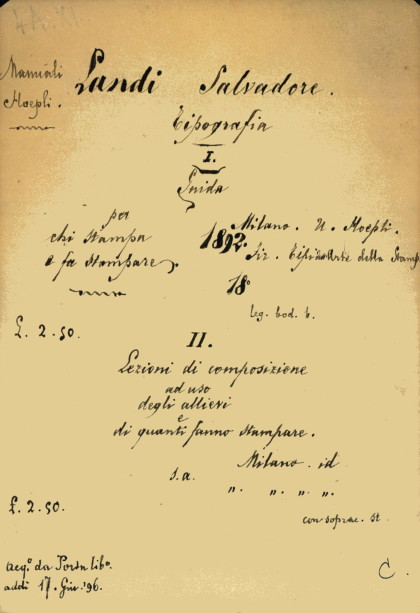 Manuali
Hoepli.
Landi Salvadore.
Tipografia
I.
Guida
per
chi stampa
e fa stampare.
1892.
Milano. U. Hoepli.
Tir. Tip. dell'Arte della Stamp
18°
leg. bod. b.
£. 2.50.
II.
Lezioni di composizione
ad uso
degli allievi
e
di quanti fanno stampare.
s.a.
Milano. id
„. „. „. „.
con soprac. st.
£. 2.50.
acq.° da Porta lib°.
addi 17. Giu. '96.
C.